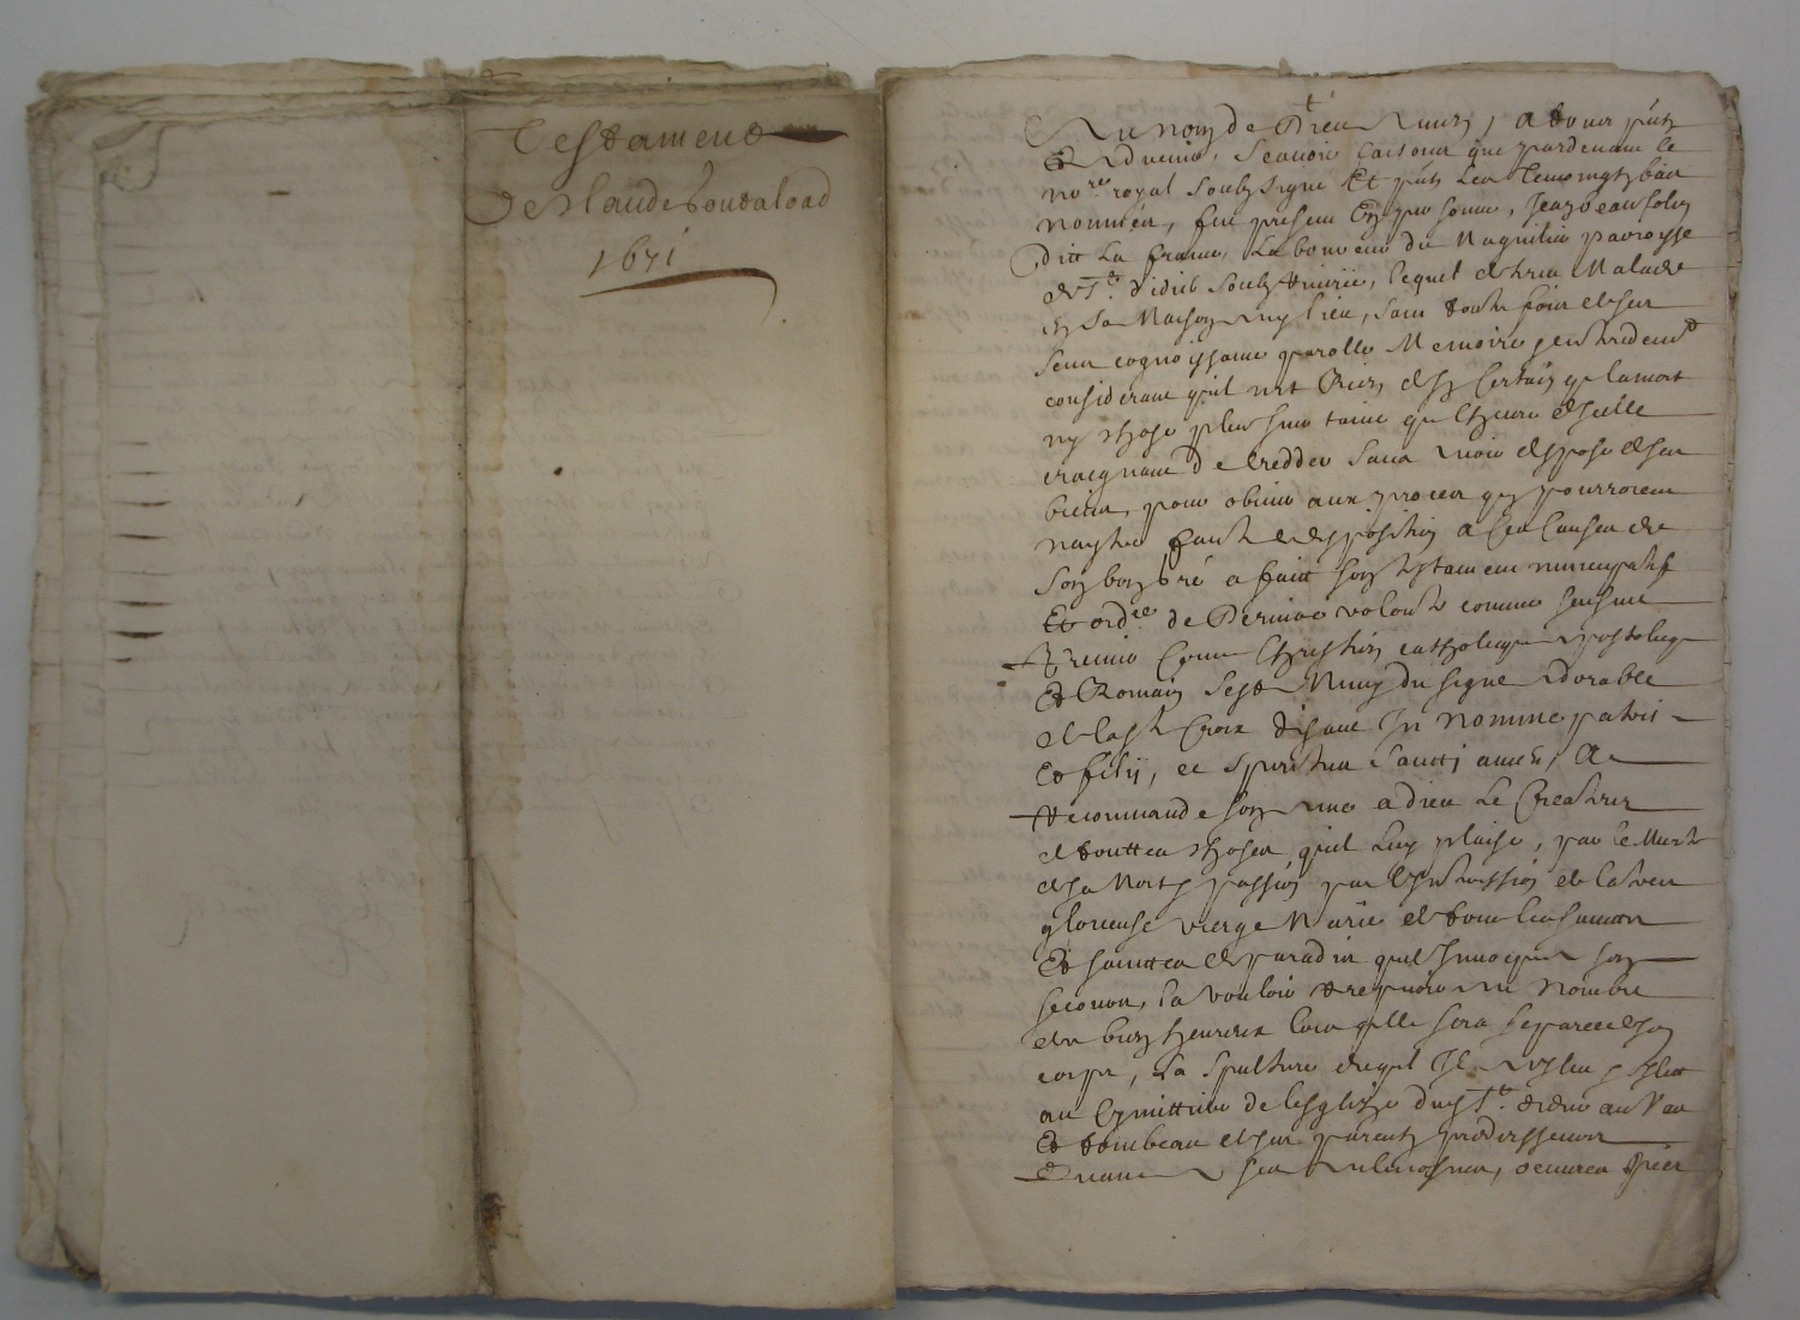 Testament
De Claude boudaload
1671
Au nom de Dieu Amen, a tous pñts
Et Advenir, Scavoir faisons que pardevant le
no.re royal soubsigne Et pñts les temoingtz bas
nommés, fut present En personne, Jean beausoleil
ditt La france, Laboureur du Magnilie parroysse
de St. didié soubz Riverie, lequel estant Malade
en sa Maison aud lieu, sain toute fois de ses
sens cognoissance parolle Memoire Et entendemt
considerant quil nest Rien de sy certain q la mort
ny chose plus incertaine que lheure dicelle
craignant de deceder sans avoir dispose de ses
biens, pour obvier aux proces qui pourroient
naystre faute de disposition a ces causes de
son bon gré a faict son testament nuncupatif
Et ordce de Derniere volonte comme sensuit
Premier Comme Chrestien catholique apostolique
Et Romain sest Muny du signe adorable
de la ste Croix disant In nomine patris
Et filij, et spiritus Sancti amen, A
Recommande son ame a dieu Le Createur
de touttes choses quil Luy plaise, par le Merite
de sa Mort & passion par lintercession de la tres
glorieuse vierge Marie de tous les saincts
Et sainttes de paradis quil Invoque a son
secours, la vouloir recepvoir au Nombre
des bien heureux lors quelle sera separee de son
corps, La sepulture duquel Il a esleu & eslit
au Cymittiere de lesglize dud St. didier au Vau
Et tombeau de ses parents predecesseurs
Quant a ses aulmosnes, oeuvres pies